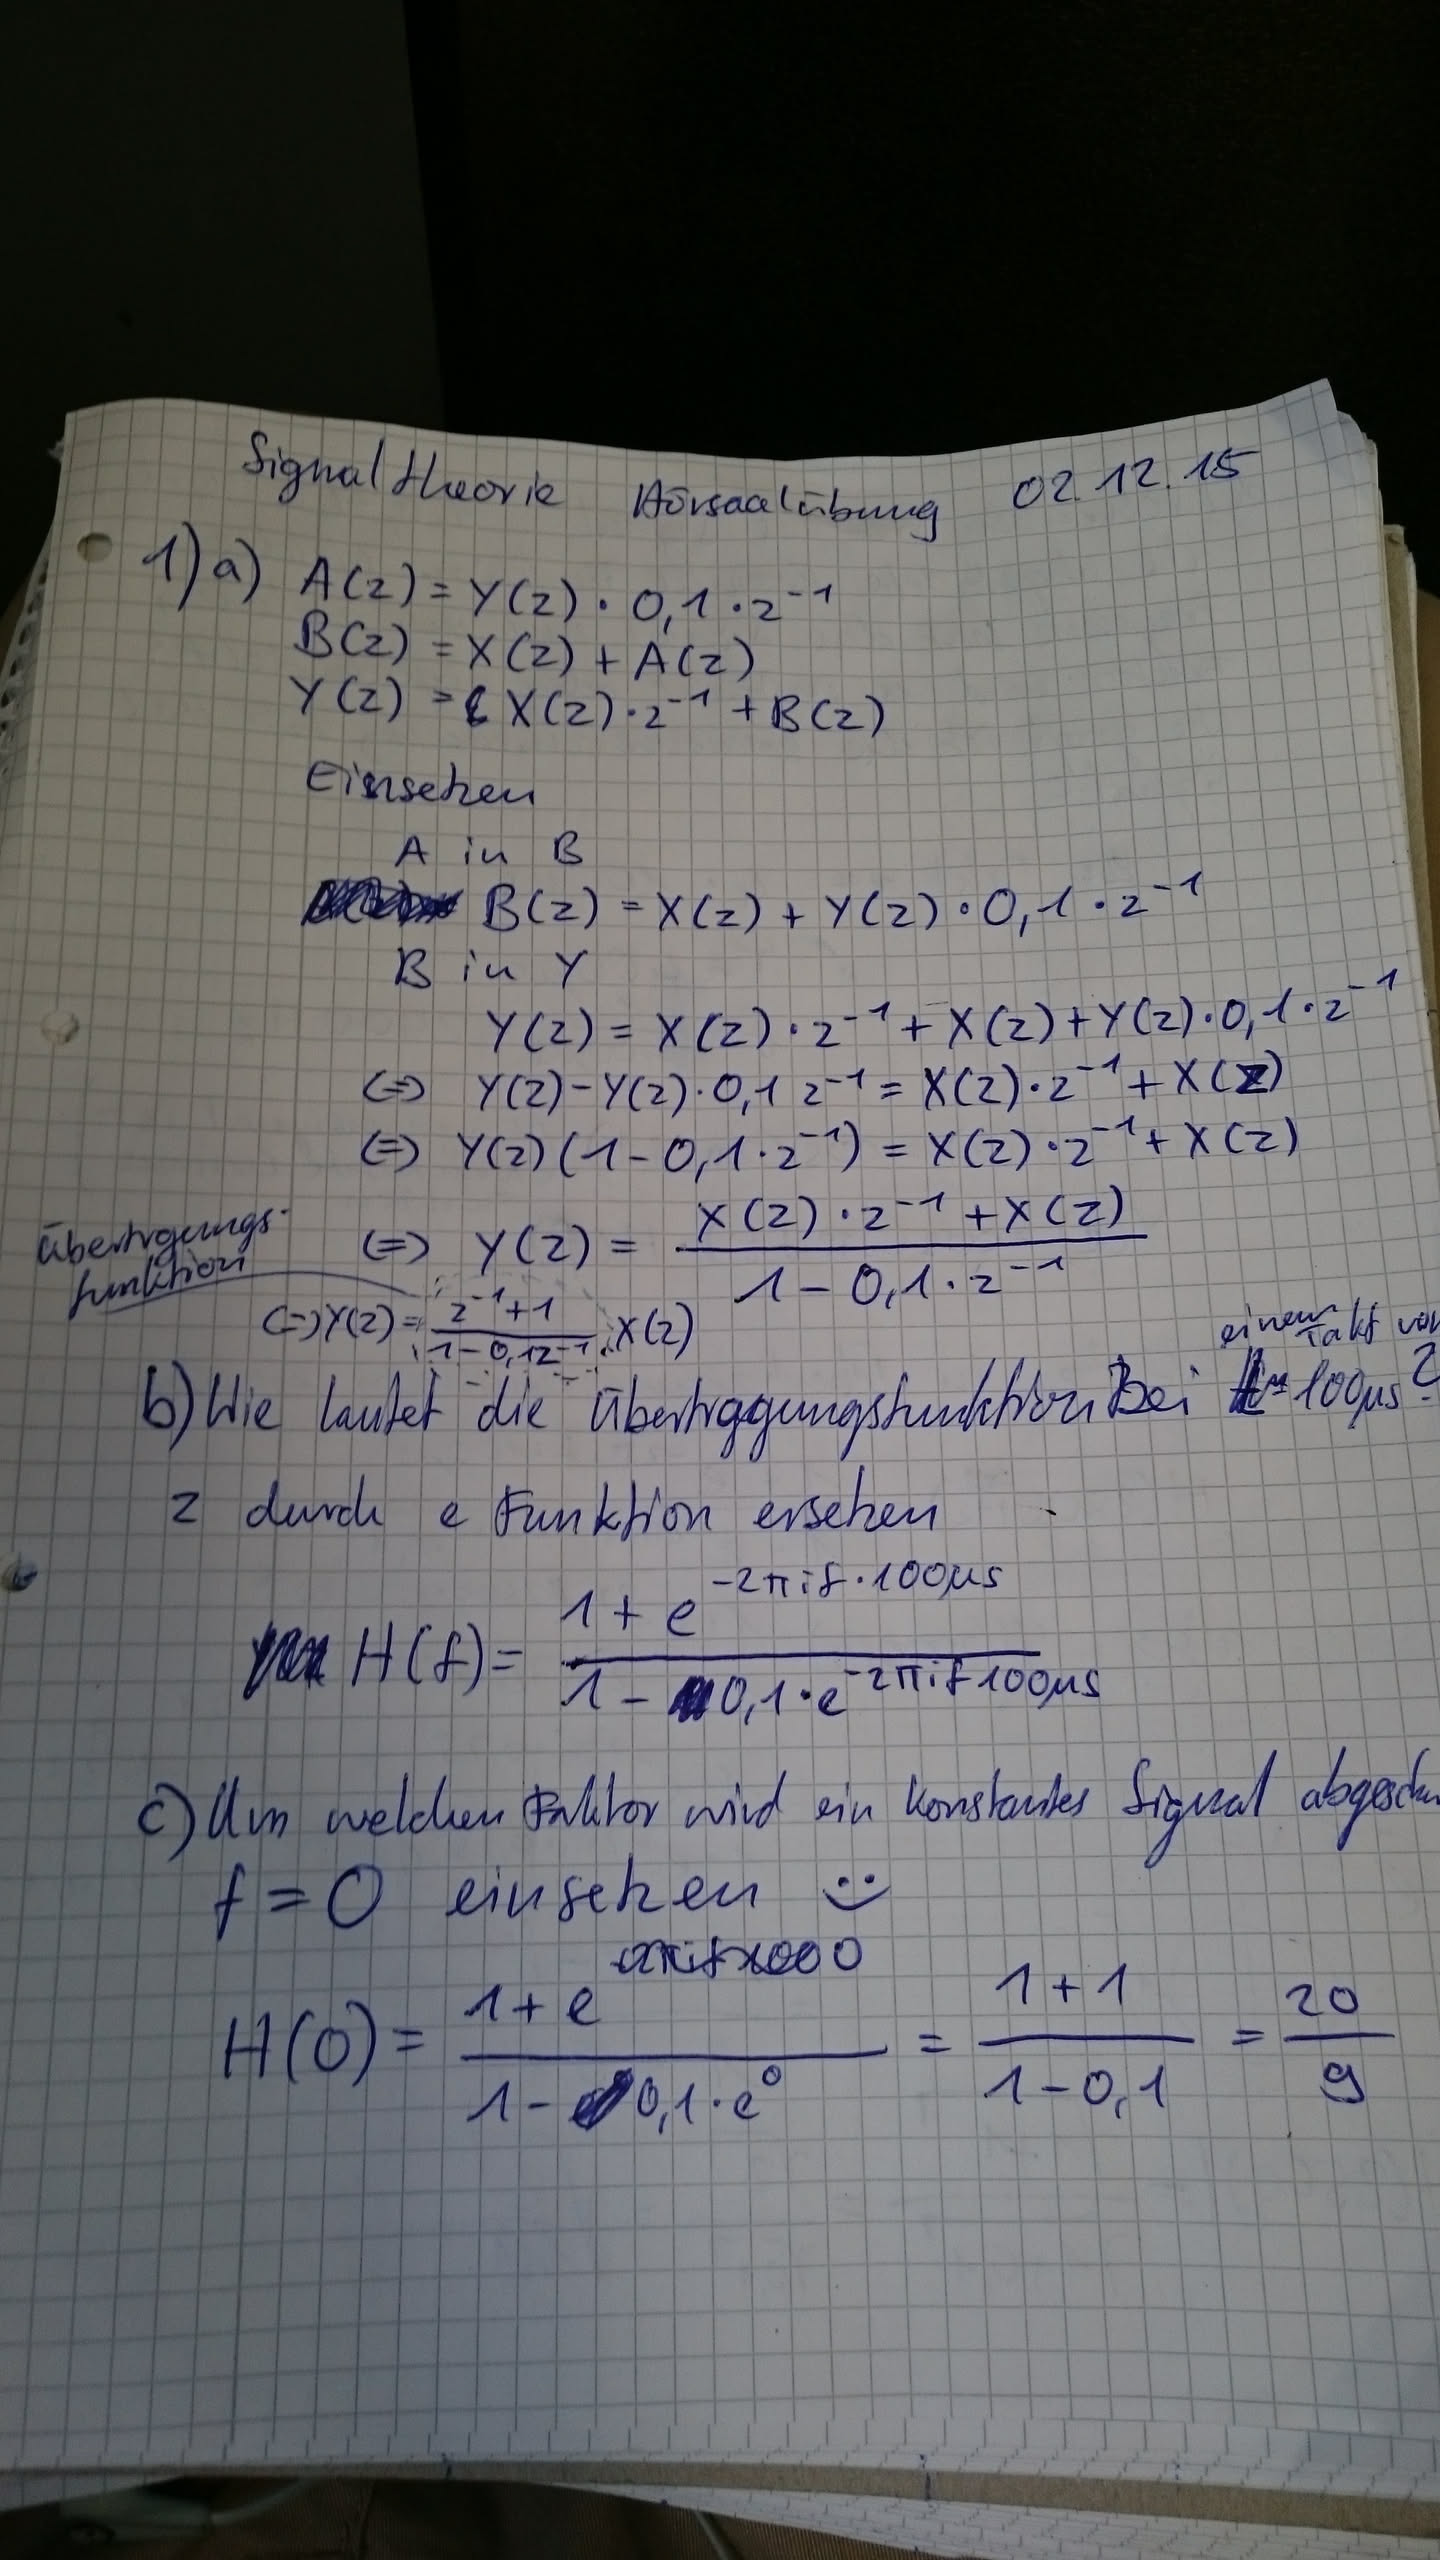 Signaltheorie Hörsaalübung 02.12.15
1) a) A(z) = Y(z) · 0,1 · z⁻¹
B(z) = X(z) + A(z)
Y(z) = X(z) · z⁻¹ + B(z)
Einsetzen
A in B
B(z) = X(z) + Y(z) · 0,1 · z⁻¹
B in Y
Y(z) = X(z) · z⁻¹ + X(z) + Y(z) · 0,1 · z⁻¹
(=) Y(z) - Y(z) · 0,1 z⁻¹ = X(z) · z⁻¹ + X(z)
(=) Y(z) (1 - 0,1 · z⁻¹) = X(z) · z⁻¹ + X(z)
(=) Y(z) = (X(z) · z⁻¹ + X(z)) / (1 - 0,1 · z⁻¹)
Übertragungs-
funktion
(=) Y(z) = (z⁻¹ + 1) / (1 - 0,1z⁻¹) · X(z)
einem Takt von
b) Wie lautet die Übertragungsfunktion Bei 100µs?
z durch e Funktion ersetzen
H(f) = (1 + e^(-2πif · 100µs)) / (1 - 0,1 · e^(-2πif 100µs))
c) Um welchen Faktor wird ein konstantes Signal
f = 0 einsetzen :)
H(0) = (1 + e^0) / (1 - 0,1 · e^0) = (1 + 1) / (1 - 0,1) = 20 / 9